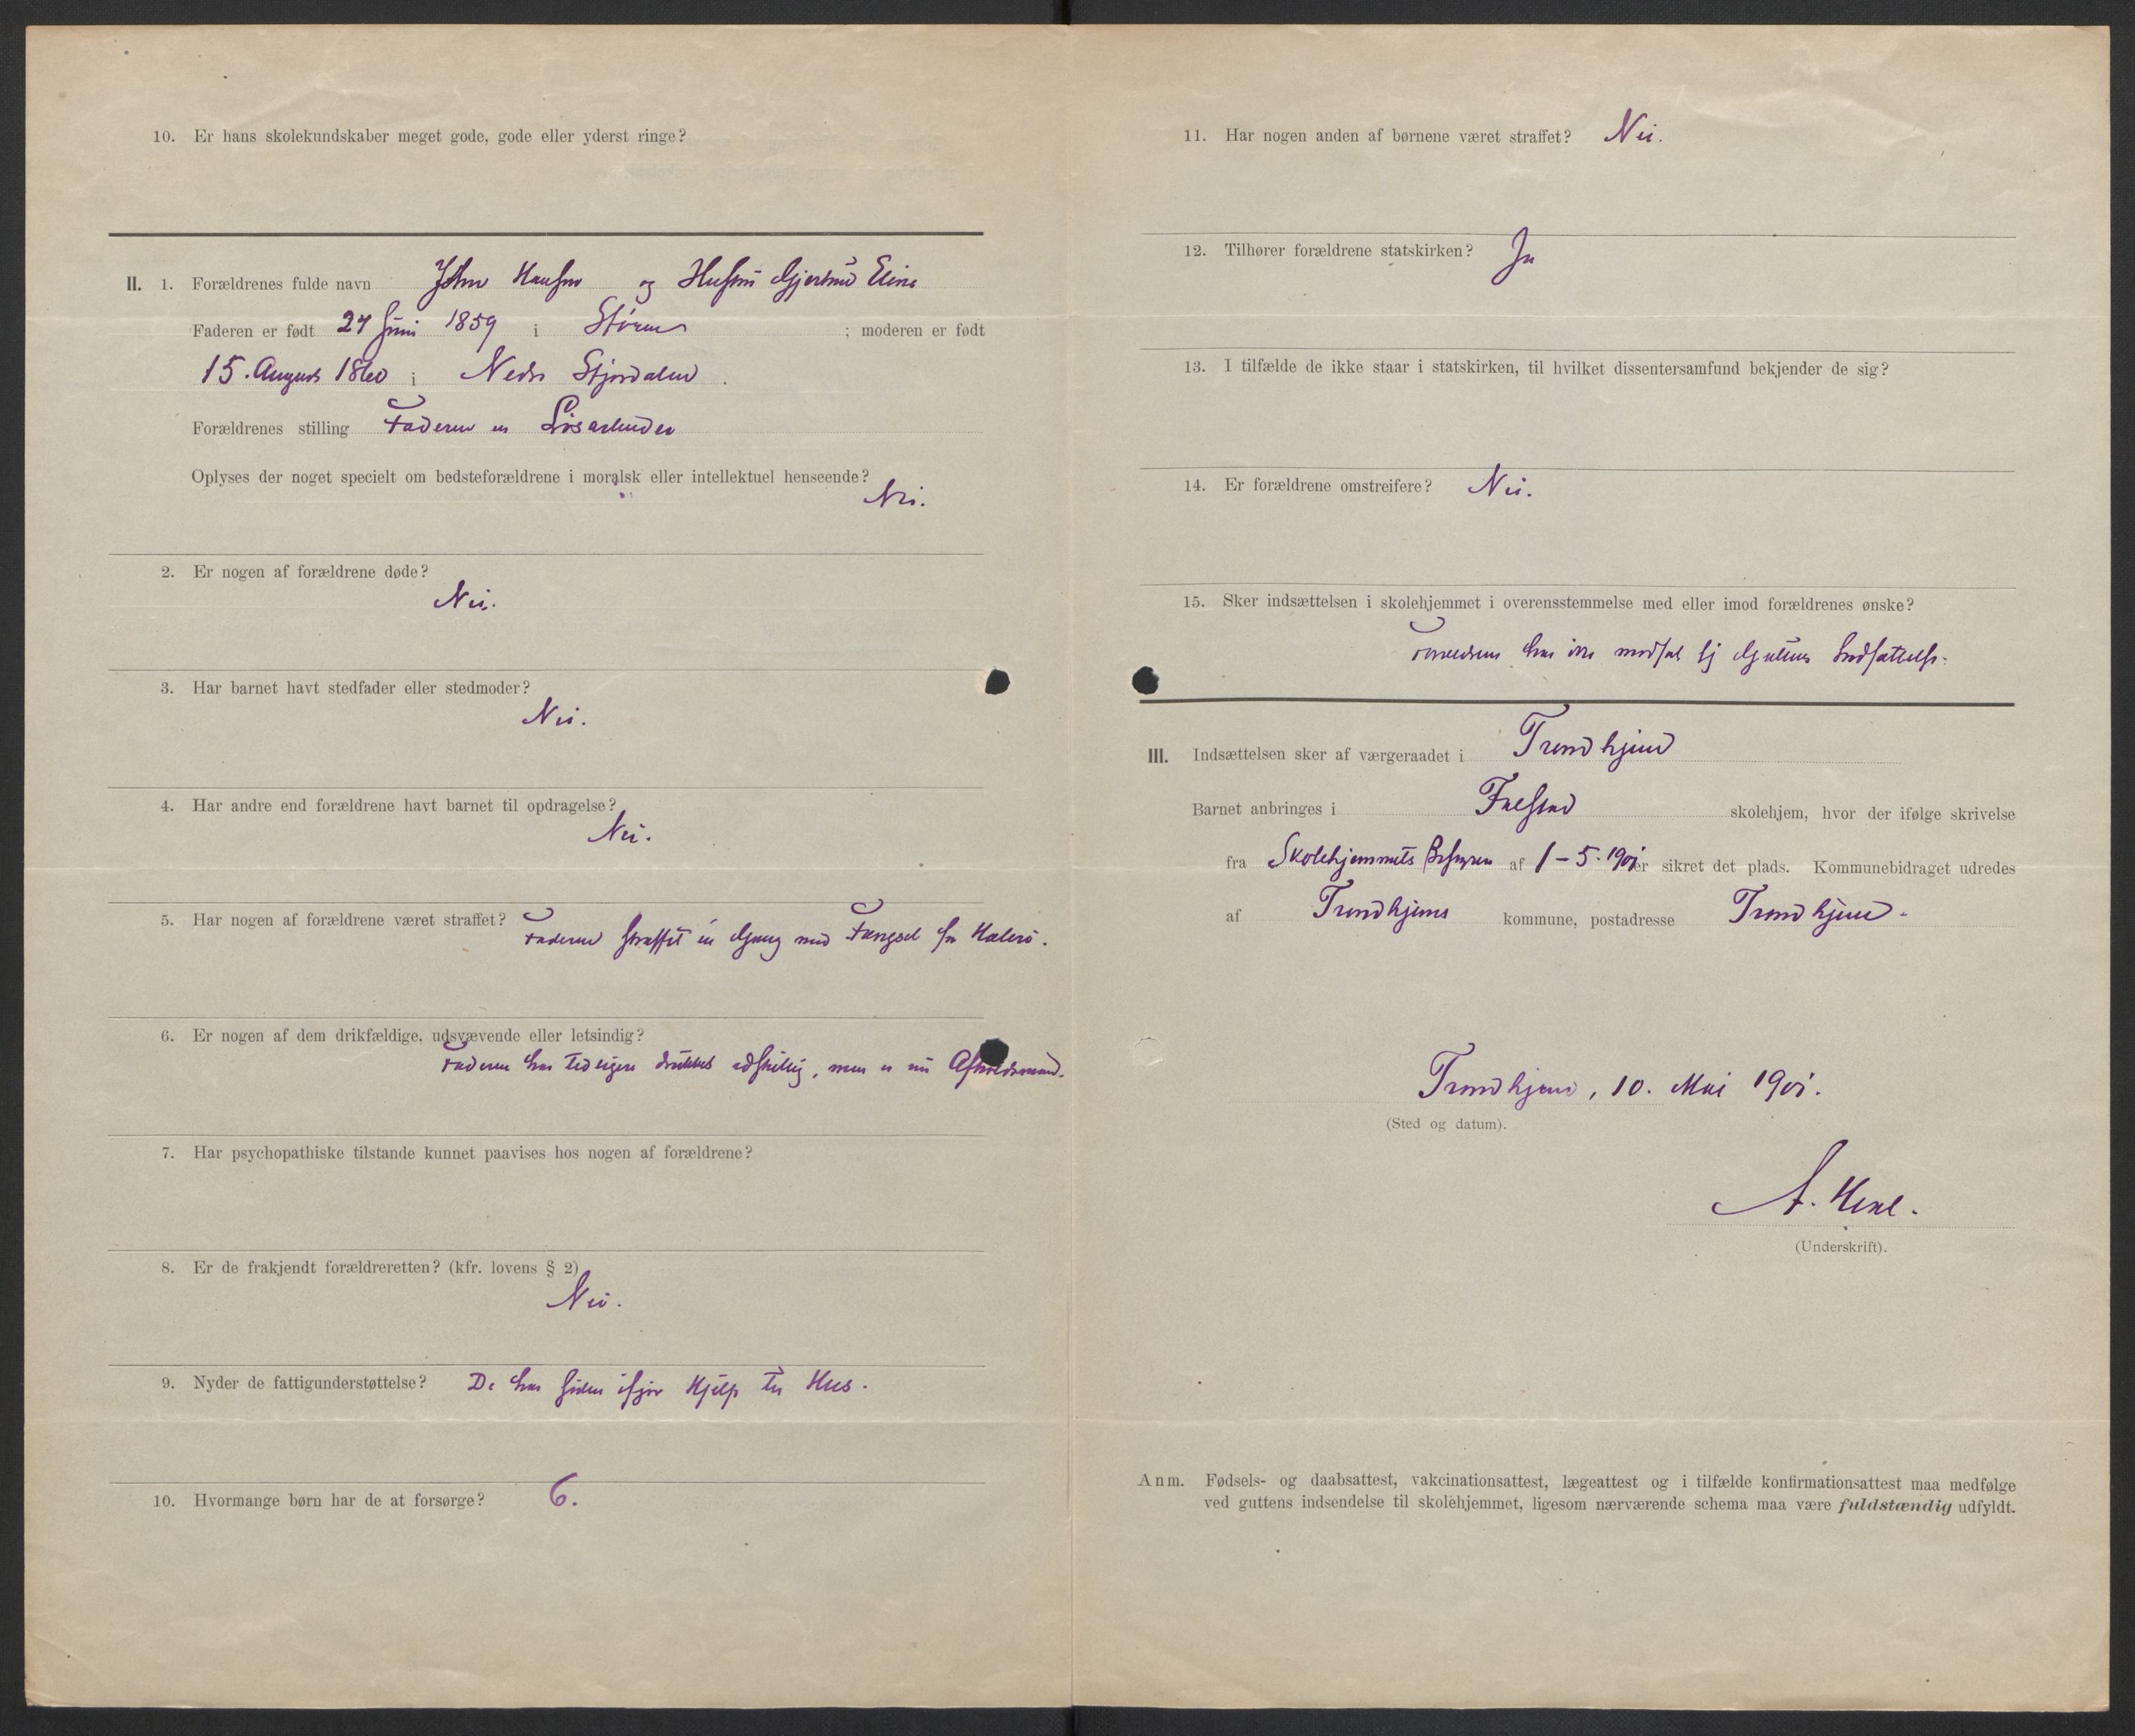 10. Er hans skolekundskaber meget gode, gode eller yderst ringe?
II. 1. Forældrenes fulde navn John Hansen og Hustru Gjertrud Eline
Faderen er født 24 Juni 1859 i Støren ; moderen er født
15. August 1860 i Nedre Stjørdalen.
Forældrenes stilling Faderen er Løsarbeider
Oplyses der noget specielt om bedsteforældrene i moralsk eller intellektuel henseende?
Nei.
2. Er nogen af forældrene døde?
Nei.
3. Har barnet havt stedfader eller stedmoder?
Nei.
4. Har andre end forældrene havt barnet til opdragelse?
Nei.
5. Har nogen af forældrene været straffet? Faderen straffet en Gang med Fængsel for Hæleri.
6. Er nogen af dem drikfældige, udsvævende eller letsindig?
Faderen har tidligere drukket adskillig, men er nu Afholdsmand.
7. Har psychopathiske tilstande kunnet paavises hos nogen af forældrene?
8. Er de frakjendt forældreretten? (kfr. lovens § 2)
Nei.
9. Nyder de fattigunderstøttelse? De har siden ifjor Hjelp til Hus.
10. Hvormange børn har de at forsørge? 6.
11. Har nogen anden af børnene været straffet? Nei.
12. Tilhører forældrene statskirken? Ja
13. I tilfælde de ikke staar i statskirken, til hvilket dissentersamfund bekjender de sig?
14. Er forældrene omstreifere? Nei.
15. Sker indsættelsen i skolehjemmet i overensstemmelse med eller imod forældrenes ønske?
Forældrene har ikke modsat sig Guttens Indsættelse.
III. Indsættelsen sker af værgeraadet i Trondhjem
Barnet anbringes i Falstad skolehjem, hvor der ifølge skrivelse
fra Skolehjemmets Bestyrer af 1-5-1901 er sikret det plads. Kommunebidraget udredes
af Trondhjems kommune, postadresse Trondhjem.
Trondhjem, 10. Mai 1901.
(Sted og datum).
A.
(Underskrift).
Anm. Fødsels- og daabsattest, vakcinationsattest, lægeattest og i tilfælde konfirmationsattest maa medfølge
ved guttens indsendelse til skolehjemmet, ligesom nærværende schema maa være fuldstændig udfyldt.